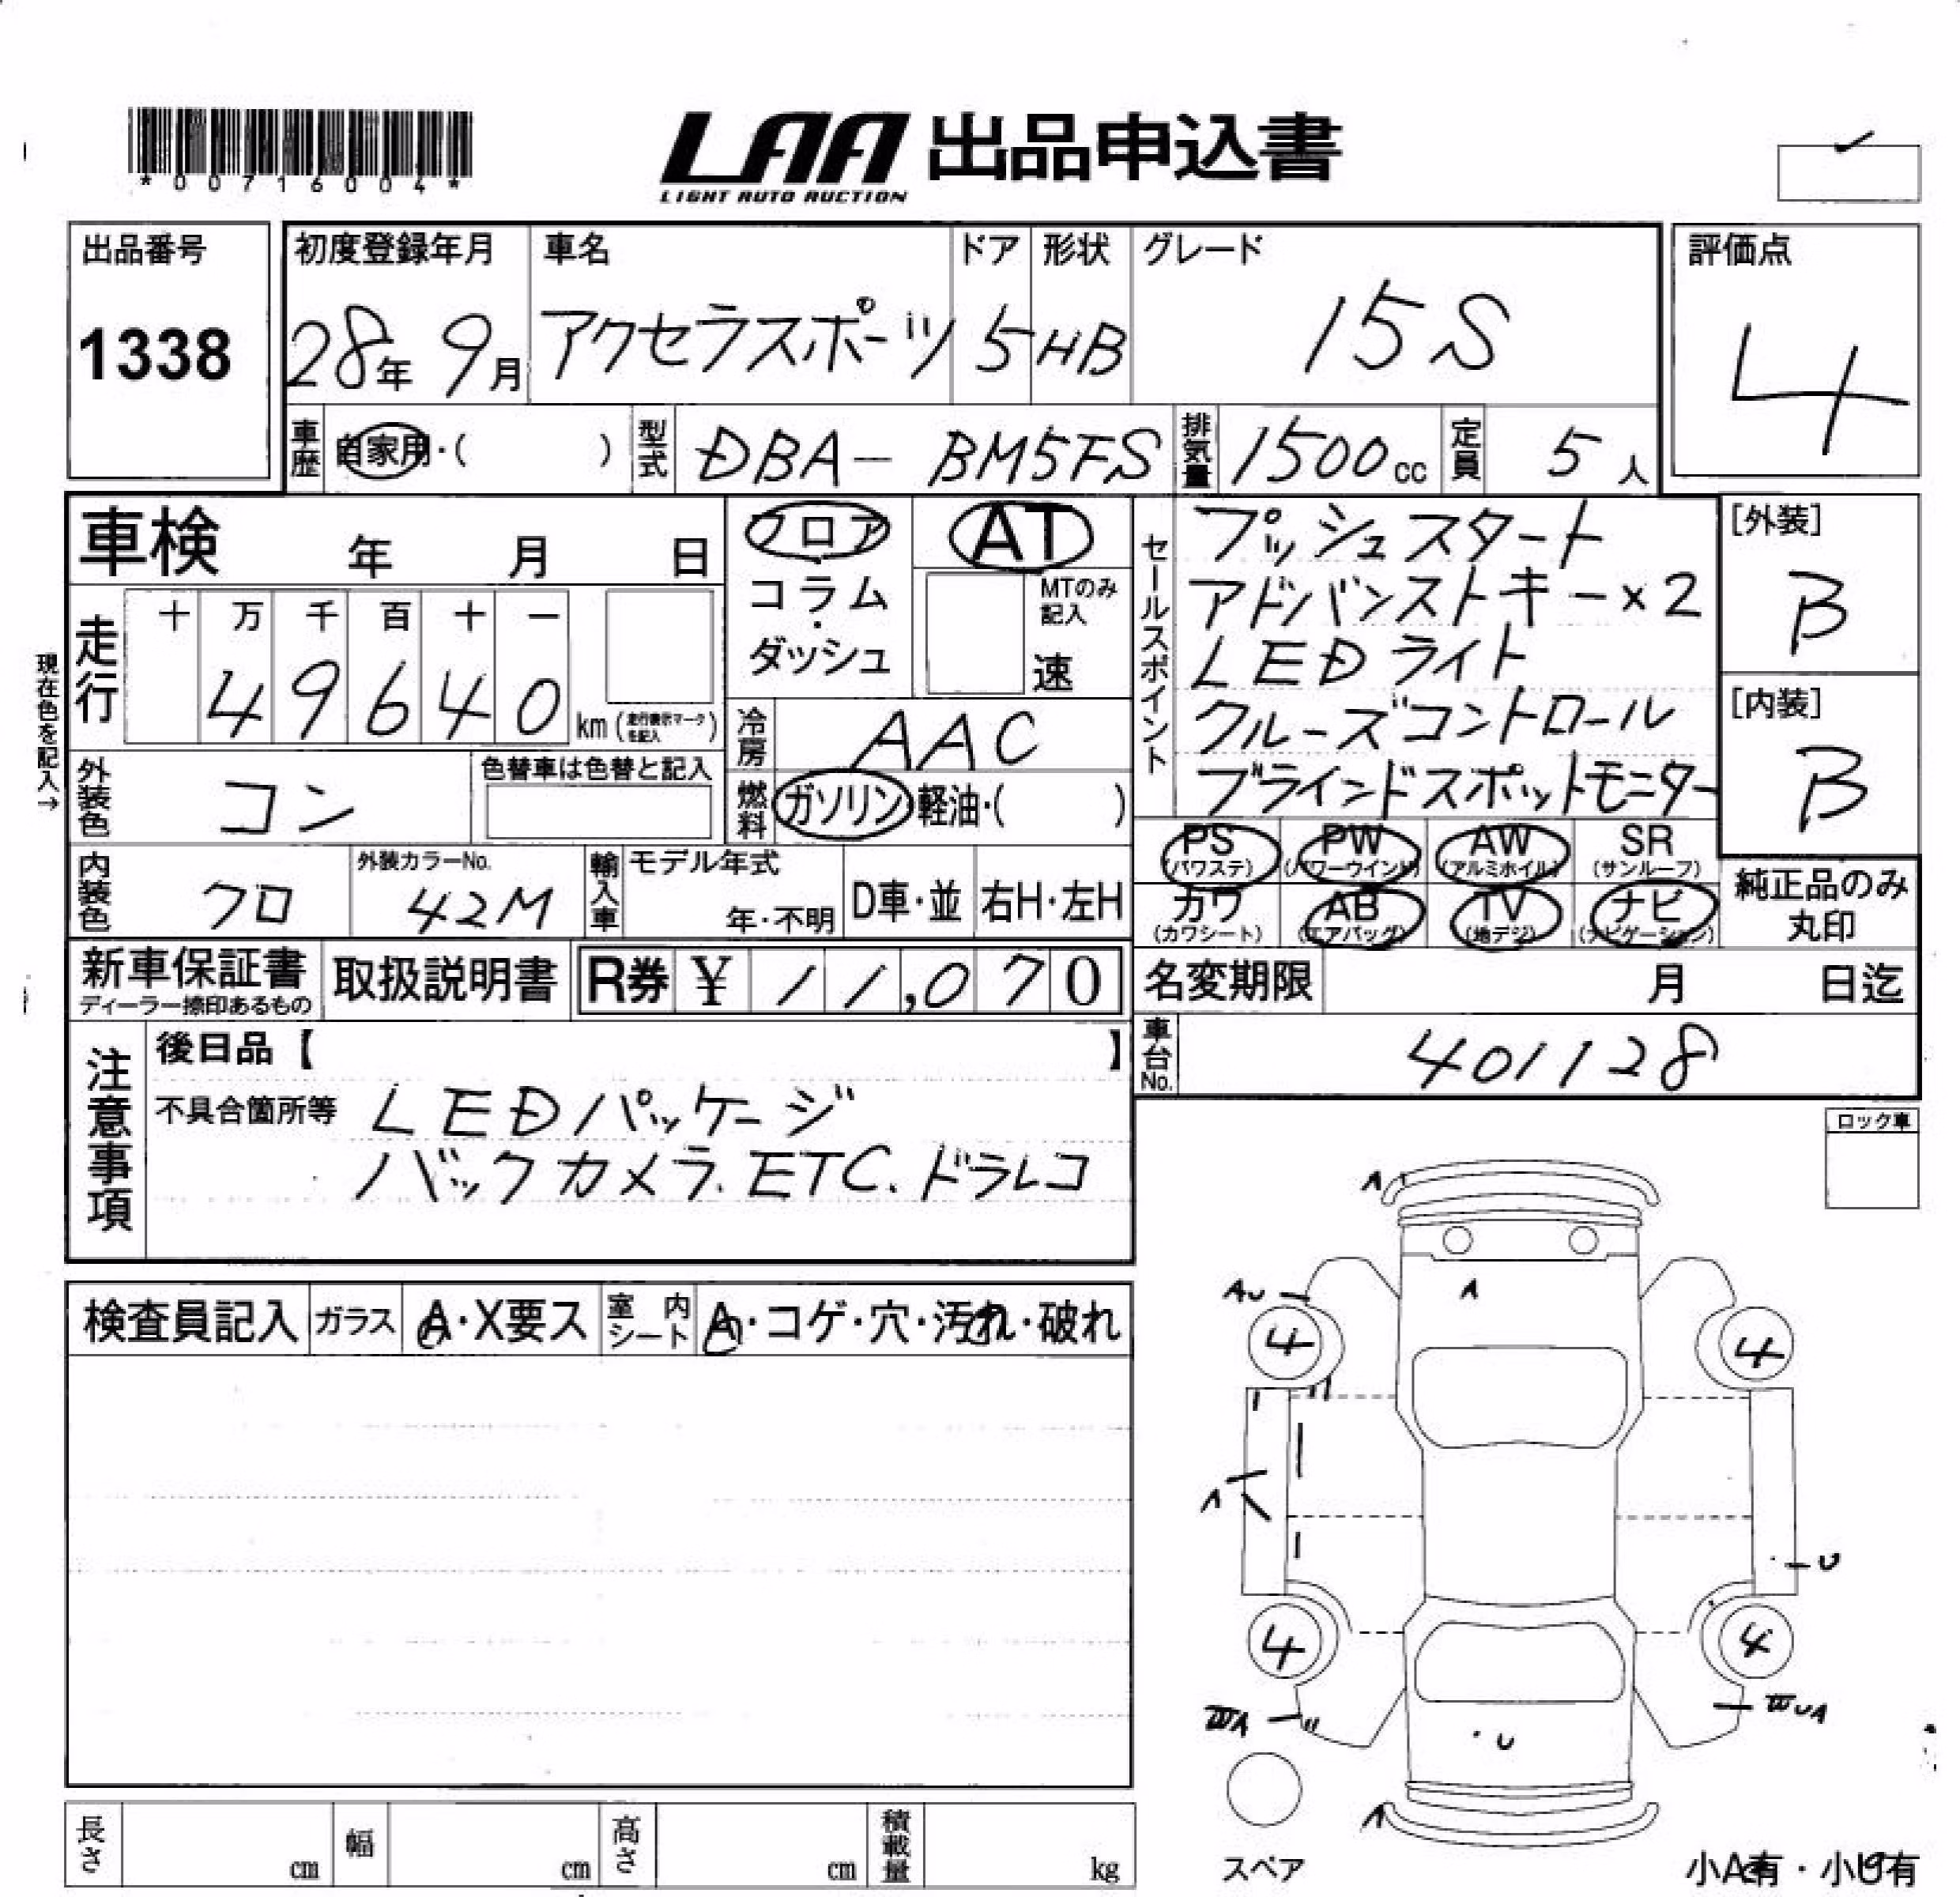 *00716004*
LAA 出品申込書
LIGHT AUTO AUCTION
出品番号 初度登録年月 車名 ドア 形状 グレード 評価点
1338 28年 9月 アクセラスポーツ 5 HB 15S 4
車歴 自家用・( ) 型式 DBA- BM5FS 排気量 1500cc 定員 5人
車検 年 月 日
フロア・コラム・ダッシュ
AT
MTのみ記入
速
セールスポイント
プッシュスタート
アドバンストキー×2
LEDライト
クルーズコントロール
ブラインドスポットモニター
[外装]
B
[内装]
B
現在色を記入→
走行 十 万 千 百 十 一
49640 km(走行表示マークを記入)
冷房 AAC
外装色 コン 色替車は色替と記入
燃料 ガソリン・軽油・( )
PS(パワステ) PW(パワーウインド) AW(アルミホイル) SR(サンルーフ)
カワ(カワシート) AB(エアバッグ) TV(地デジ) ナビ(ナビゲーション)
純正品のみ丸印
内装色 クロ 外装カラーNo. 42M 輸入車 モデル年式 年・不明 D車・並 右H・左H
新車保証書 ディーラー捺印あるもの 取扱説明書 R券 ¥ 11,070 名変期限 月 日迄
車台No. 401128
注意事項
後日品【 】
不具合箇所等 LEDパッケージ
バックカメラ.ETC.ドラレコ
ロック車
検査員記入 ガラス A・X要ス 室内シート A・コゲ・穴・汚れ・破れ
A
AU A
4 4
A
U
4 4
U
A
スペア
小A有・小U有
長さ cm 幅 cm 高さ cm 積載量 kg